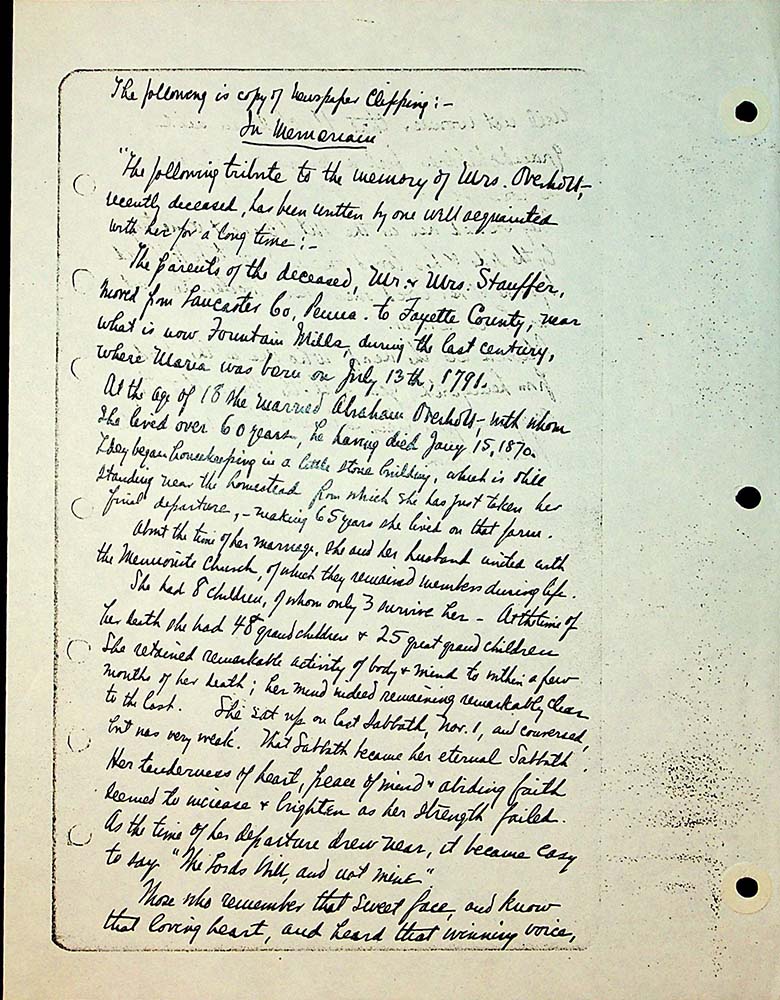 The following is copy of Newspaper Clipping:-
In Memoriam
"The following tribute to the memory of Mrs. Overholt,
recently deceased, has been written by one well acquainted
with her for a long time:-
The parents of the deceased, Mr. & Mrs. Stauffer,
moved from Lancaster Co, Penna. to Fayette County, near
what is now Fountain Mills, during the last century,
where Maria was born on July 13th, 1791.
At the age of 18 she married Abraham Overholt - with whom
she lived over 60 years, he having died Jany 15, 1870.
They began housekeeping in a little stone building, which is still
standing near the homestead from which she has just taken her
final departure, - making 65 years she lived on that farm.
About the time of her marriage, she and her husband united with
the Mennonite Church, of which they remained members during life.
She had 8 children, of whom only 3 survive her - At the time of
her death she had 48 grand children & 25 great grand children
She retained remarkable activity of body & mind to within a few
months of her death; her mind indeed remaining remarkably clear
to the last. She sat up on last Sabbath, Nov. 1, and conversed,
but was very weak. That Sabbath became her eternal Sabbath
Her tenderness of heart, peace of mind & abiding faith
seemed to increase & brighten as her strength failed.
As the time of her departure drew near, it became easy
to say "The Lords Will, and not mine"
Those who remember that sweet face, and know
that loving heart, and heard that winning voice,